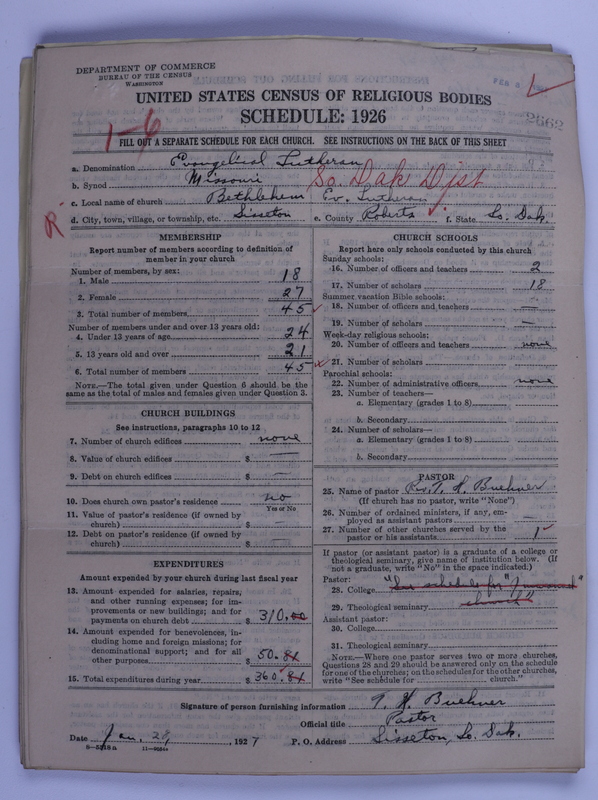 DEPARTMENT OF COMMERCE
BUREAU OF THE CENSUS
WASHINGTON
UNITED STATES CENSUS OF RELIGIOUS BODIES
SCHEDULE: 1926
2662
1-6
FILL OUT A SEPARATE SCHEDULE FOR EACH CHURCH. SEE INSTRUCTIONS ON THE BACK OF THIS SHEET
a. Denomination Evangelical Lutheran
b. Synod Missouri So. Dak Dist
c. Local name of church Bethlehem Ev. Lutheran
d. City, town, village, or township, etc. Sisseton e. County Roberts f. State So. Dak.
R
MEMBERSHIP
Report number of members according to definition of
member in your church
Number of members, by sex:
1. Male 18
2. Female 27
3. Total number of members 45
Number of members under and over 13 years old:
4. Under 13 years of age 24
5. 13 years old and over 21
6. Total number of members 45
NOTE.—The total given under Question 6 should be the
same as the total of males and females given under Question 3.
CHURCH BUILDINGS
See instructions, paragraphs 10 to 12
7. Number of church edifices none
8. Value of church edifices $ —
9. Debt on church edifices $ —
10. Does church own pastor's residence no
Yes or No
11. Value of pastor's residence (if owned by
church) $ —
12. Debt on pastor's residence (if owned by
church) $ —
EXPENDITURES
Amount expended by your church during last fiscal year
13. Amount expended for salaries, repairs,
and other running expenses; for im-
provements or new building; and for
payments on church debt $ 310.00
14. Amount expended for benevolences, in-
cluding home and foreign missions; for
denominational support; and for all
other purposes $ 50.81
15. Total expenditures during year $ 360.81
CHURCH SCHOOLS
Report here only schools conducted by this church
Sunday schools:
16. Number of officers and teachers 2
17. Number of scholars 18
Summer vacation Bible schools:
18. Number of officers and teachers —
19. Number of scholars —
Week-day religious schools:
20. Number of officers and teachers none
21. Number of scholars —
Parochial schools:
22. Number of administrative officers none
23. Number of teachers—
a. Elementary (grades 1 to 8)
b. Secondary
24. Number of scholars—
a. Elementary (grades 1 to 8)
b. Secondary
PASTOR
25. Name of pastor Rev. T. H. Buehner
(If church has no pastor, write "None")
26. Number of ordained ministers, if any, em-
ployed as assistant pastors —
27. Number of other churches served by the
pastor or his assistants 1
If pastor (or assistant pastor) is a graduate of a college or
theological seminary, give name of institution below. (If
not a graduate, write "No" in the space indicated.)
Pastor:
28. College "See schedule for
29. Theological seminary church"
Assistant pastor:
30. College
31. Theological seminary
NOTE.—Where one pastor serves two or more churches,
Questions 28 and 29 should be answered only on the schedule
for one of the churches; on the schedules for the other churches,
write "See schedule for church."
Signature of person furnishing information T. H. Buehner
Official title Pastor
Date Jan. 28, 1927 P. O. Address Sisseton, So. Dak.